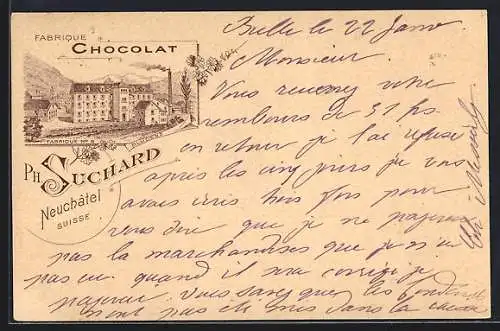 FABRIQUE
CHOCOLAT
FABRIQUE No 5
PH. SUCHARD
Neuchâtel
SUISSE
Bulle le 22 Janv
Monsieur
Vous recevrez votre
rembours de 31 frs
en retour je l'ai refusé
après les cinq jours je vous
avais écris trois fois pour
vous dire que je ne payerai
pas la marchandises que je n'ai
pas eu quand il sera corrigé je
payerai Vous savez que les
n'ont pas été mis dans la caisse